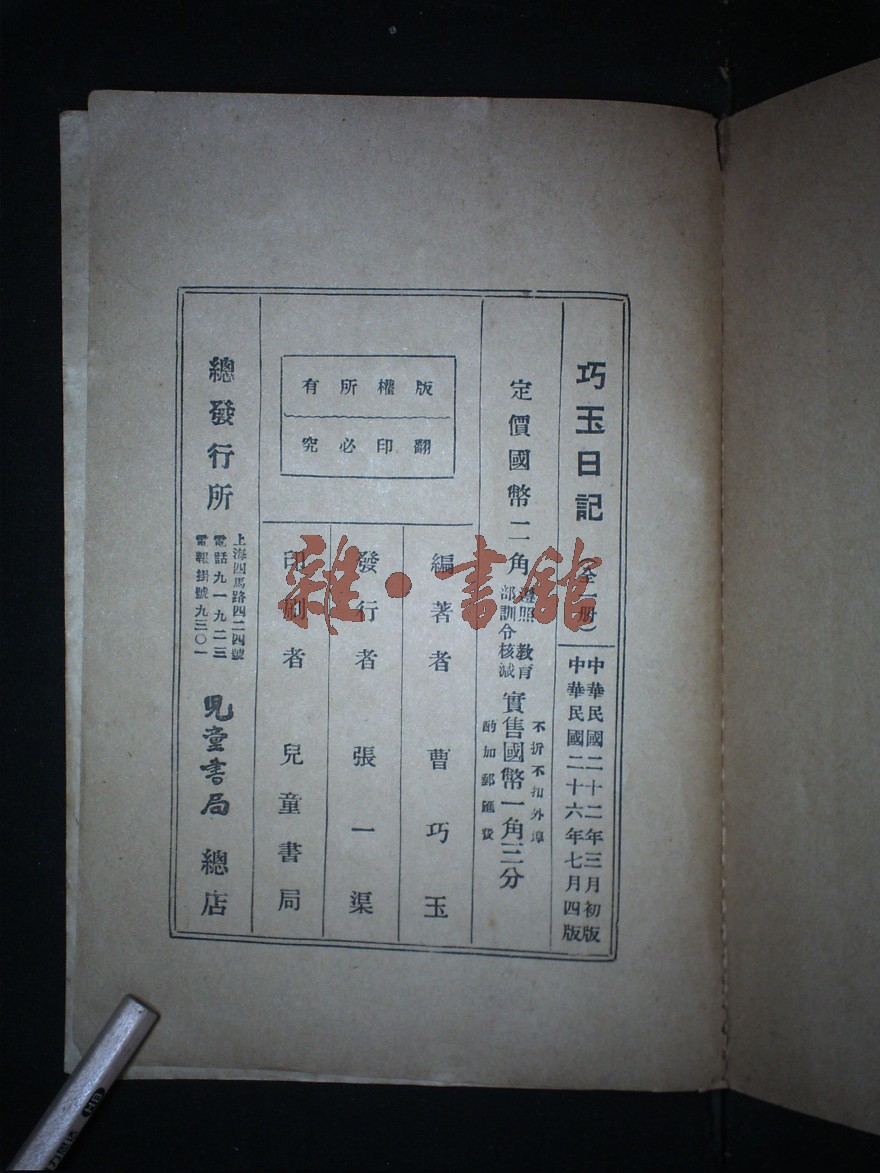 巧玉日記(全一册)
中華民國二十二年三月初版
中華民國二十六年七月四版
定價國幣二角
遵照教育
部訓令核減
實售國幣一角三分
不折不扣外埠
酌加郵匯費
版權所有
翻印必究
編著者 曹巧玉
發行者 張一渠
印刷者 兒童書局
總發行所
上海四馬路四二四號
電話九一九二三
電報掛號九三〇一
兒童書局 總店
雜·書館
HB